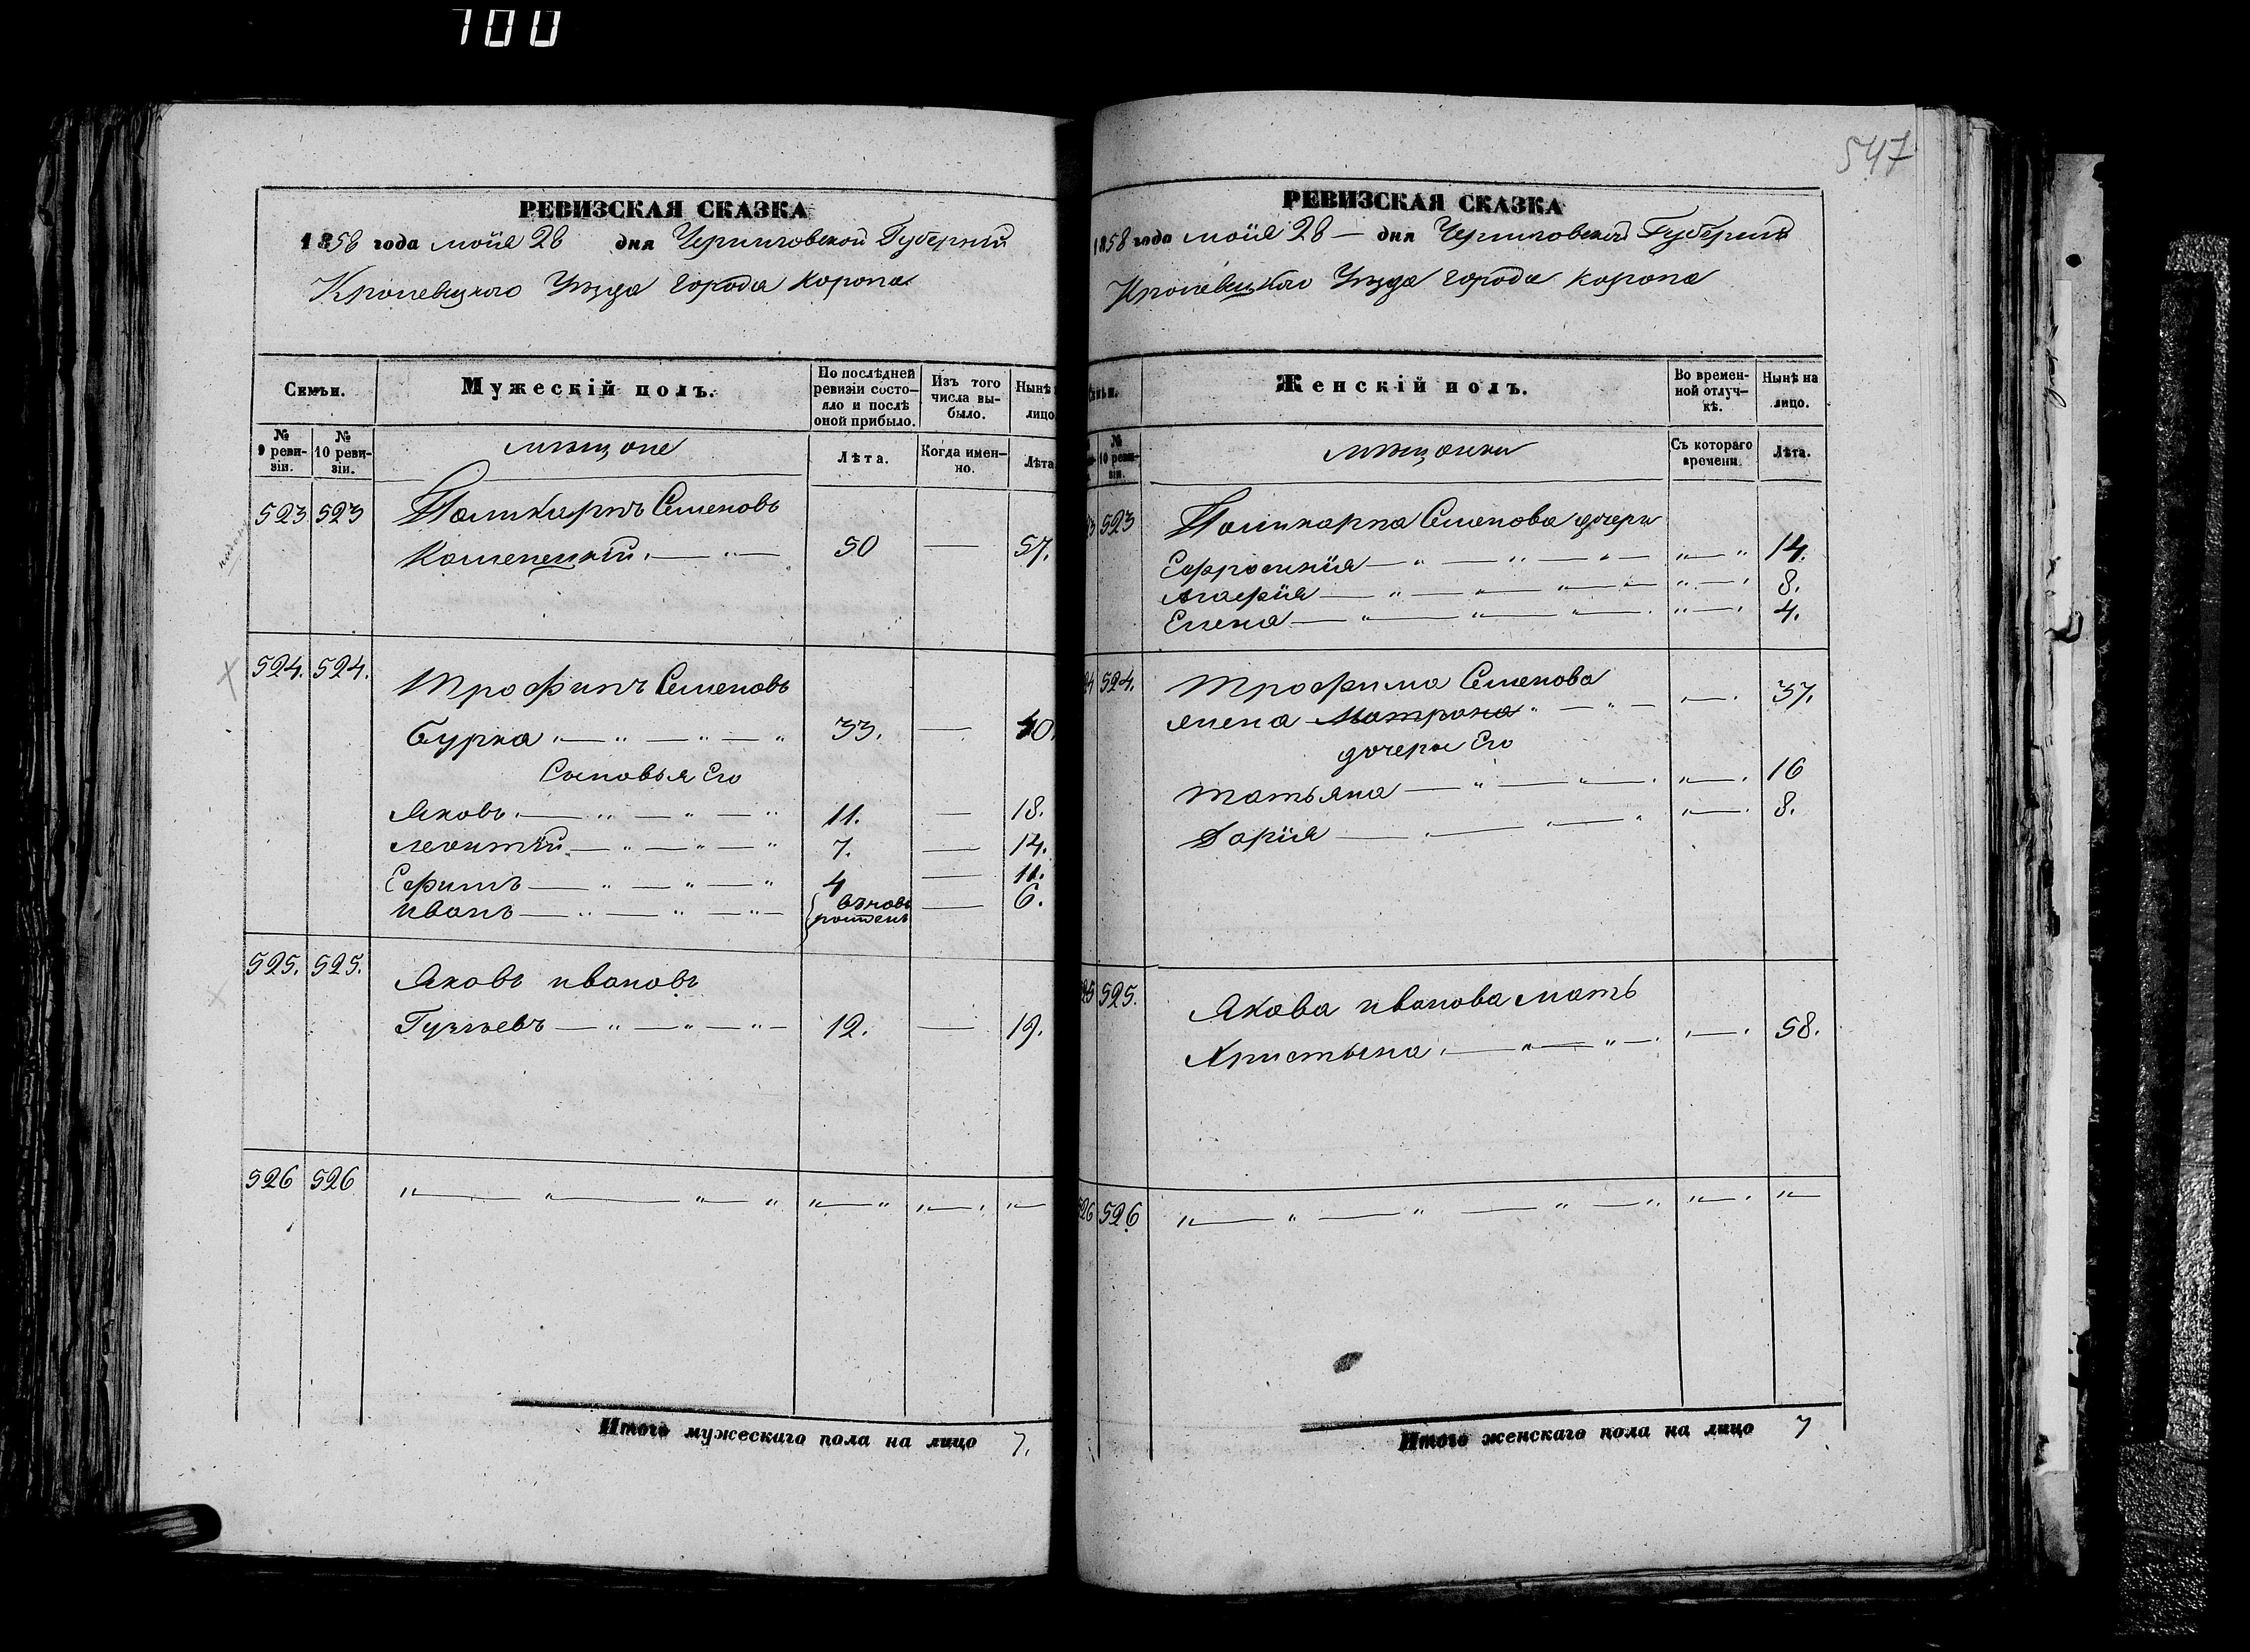 700
547
РЕВИЗСКАЯ СКАЗКА
1858 года маія 28 дня Черниговской Губерніи
Кролевецкого Уезда города Коропа
Семьи.
Мужескій полъ.
По послѣдней ревизіи состояло и послѣ оной прибыло.
Изъ того числа выбыло.
Нынѣ
лицо
№ 9 ревизіи.
№ 10 ревизіи.
мѣщане
Лѣта.
Когда именно.
Лѣта
523 523 Поликарпъ Семеновъ
50 — 57.
524. 524. Трофимъ Семеновъ
Бурка 33. — 40.
Сыновья Его
Яковъ 11. — 18.
Леонтій 7. — 14.
Ефимъ 4 — 11.
Иванъ вновь рожденъ — 6.
525. 525. Яковъ Ивановъ
12. — 19.
526 526
Итого мужескаго пола на лицо 7.
РЕВИЗСКАЯ СКАЗКА
1858 года маія 28 — дня Черниговской Губерніи
Кролевецкого Уезда города Коропа
Женскій полъ.
Во временной отлучкѣ.
Нынѣ на лицо.
№ 10 ревизіи.
мѣщанки
Съ котораго времени.
Лѣта.
523 Поликарпа Семенова дочери
Ефросинія 14.
Агафія 8.
Елена 4.
524. Трофима Семенова
37.
дочери Его
Татьяна 16
Дарія 8.
525. Якова Иванова мать
Христина 58.
526 526
Итого женскаго пола на лицо 7